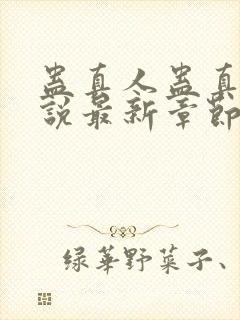 蛊真人蛊真
說最新章節
绿華野菜子、